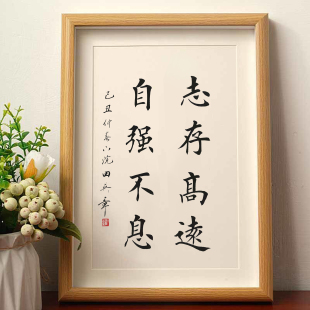 志存高遠
自强不息
己丑仲春小浣田英章